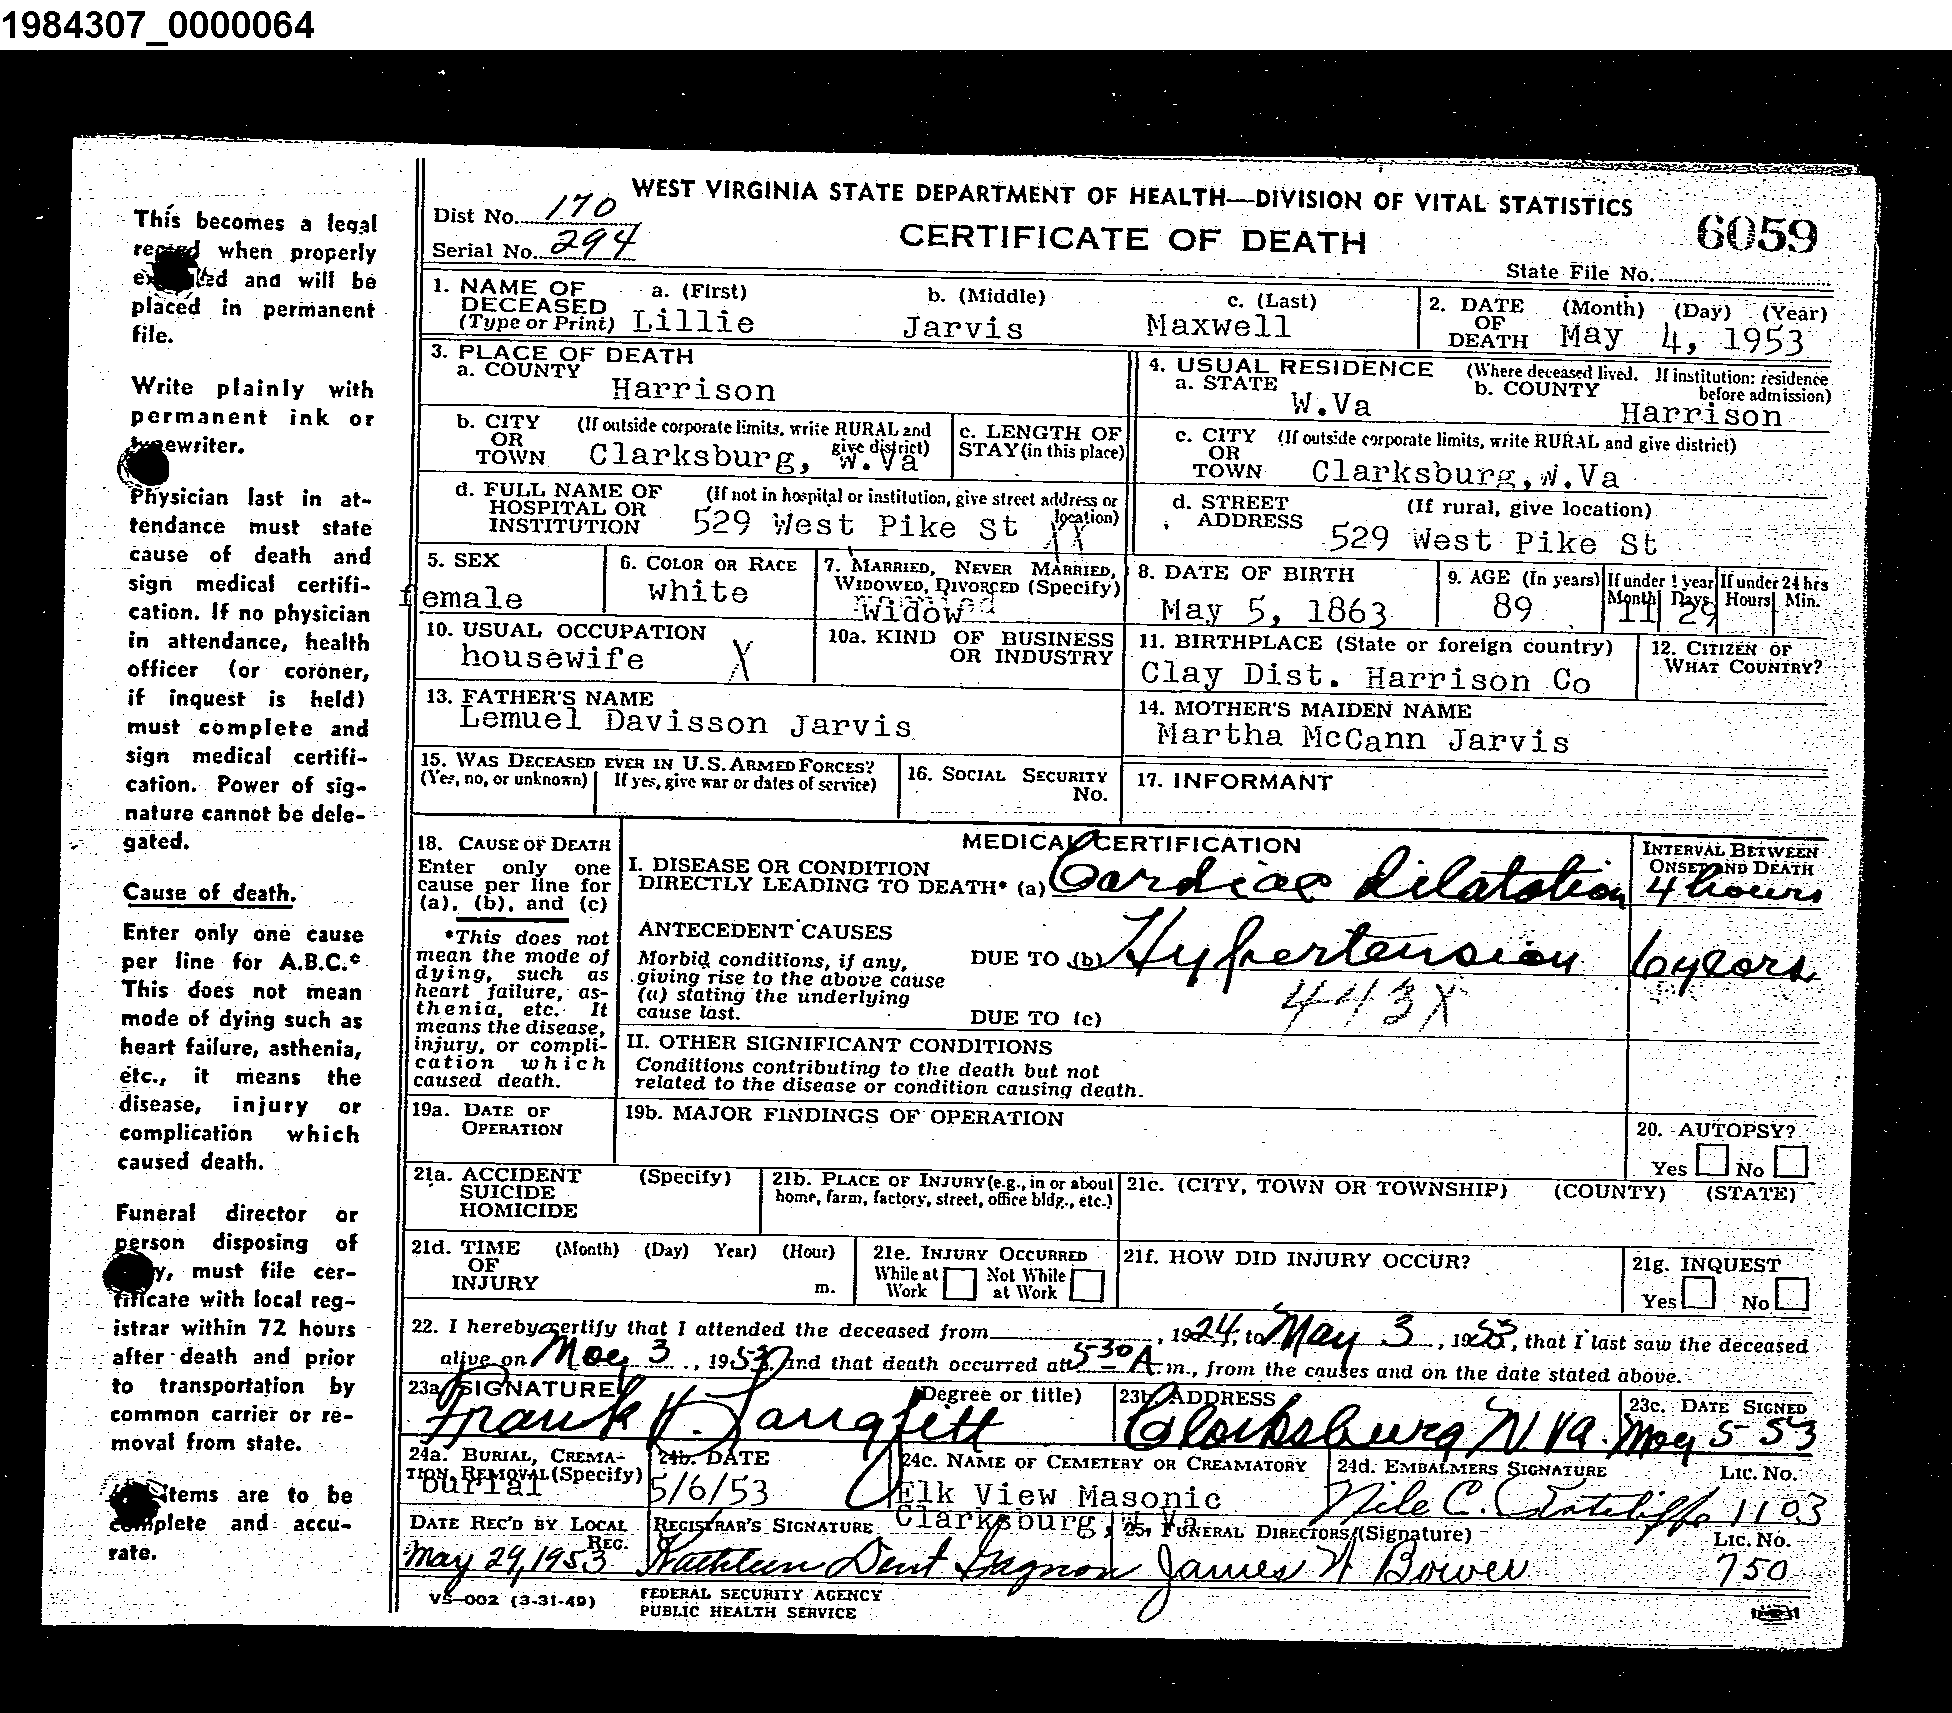 1984307_0000064
WEST VIRGINIA STATE DEPARTMENT OF HEALTH—DIVISION OF VITAL STATISTICS
Dist No. 170
Serial No. 294
CERTIFICATE OF DEATH
6059
State File No.
This becomes a legal
when properly
and will be
placed in permanent
file.
Write plainly with
permanent ink or
typewriter.
Physician last in at-
tendance must state
cause of death and
sign medical certifi-
cation. If no physician
in attendance, health
officer (or coroner,
if inquest is held)
must complete and
sign medical certifi-
cation. Power of sig-
nature cannot be dele-
gated.
Cause of death.
Enter only one cause
per line for A.B.C.*
This does not mean
mode of dying such as
heart failure, asthenia,
etc., it means the
disease, injury or
complication which
caused death.
Funeral director or
person disposing of
must file cer-
tificate with local reg-
istrar within 72 hours
after death and prior
to transportation by
common carrier or re-
moval from state.
items are to be
complete and accu-
rate.
1. NAME OF DECEASED (Type or Print) a. (First) Lillie b. (Middle) Jarvis c. (Last) Maxwell
2. DATE OF DEATH (Month) (Day) (Year) May 4, 1953
3. PLACE OF DEATH
a. COUNTY Harrison
4. USUAL RESIDENCE (Where deceased lived. If institution: residence before admission)
a. STATE W.Va b. COUNTY Harrison
b. CITY OR TOWN (If outside corporate limits, write RURAL and give district) Clarksburg, W.Va
c. LENGTH OF STAY (in this place)
c. CITY OR TOWN (If outside corporate limits, write RURAL and give district) Clarksburg, W.Va
d. FULL NAME OF HOSPITAL OR INSTITUTION (If not in hospital or institution, give street address or location) 529 West Pike St XX
d. STREET ADDRESS (If rural, give location) 529 West Pike St
5. SEX female
6. COLOR OR RACE white
7. MARRIED, NEVER MARRIED, WIDOWED, DIVORCED (Specify) Widow
8. DATE OF BIRTH May 5, 1863
9. AGE (In years) 89 If under 1 year Month 11 Days 29 If under 24 hrs Hours Min.
10. USUAL OCCUPATION housewife X
10a. KIND OF BUSINESS OR INDUSTRY
11. BIRTHPLACE (State or foreign country) Clay Dist. Harrison Co
12. CITIZEN OF WHAT COUNTRY?
13. FATHER'S NAME Lemuel Davisson Jarvis
14. MOTHER'S MAIDEN NAME Martha McCann Jarvis
15. WAS DECEASED EVER IN U.S. ARMED FORCES?
(Yes, no, or unknown) If yes, give war or dates of service)
16. SOCIAL SECURITY No.
17. INFORMANT
18. CAUSE OF DEATH
Enter only one
cause per line for
(a), (b), and (c)
*This does not
mean the mode of
dying, such as
heart failure, as-
thenia, etc. It
means the disease,
injury, or compli-
cation which
caused death.
MEDICAL CERTIFICATION
INTERVAL BETWEEN ONSET AND DEATH
I. DISEASE OR CONDITION
DIRECTLY LEADING TO DEATH* (a) Cardiac dilatation 4 hours
ANTECEDENT CAUSES
Morbid conditions, if any,
giving rise to the above cause
(a) stating the underlying
cause last.
DUE TO (b) Hypertension 6 years
443X
DUE TO (c)
II. OTHER SIGNIFICANT CONDITIONS
Conditions contributing to the death but not
related to the disease or condition causing death.
19a. DATE OF OPERATION
19b. MAJOR FINDINGS OF OPERATION
20. AUTOPSY?
Yes No
21a. ACCIDENT SUICIDE HOMICIDE (Specify)
21b. PLACE OF INJURY (e.g., in or about home, farm, factory, street, office bldg., etc.)
21c. (CITY, TOWN OR TOWNSHIP) (COUNTY) (STATE)
21d. TIME OF INJURY (Month) (Day) Year) (Hour) m.
21e. INJURY OCCURRED While at Work Not While at Work
21f. HOW DID INJURY OCCUR?
21g. INQUEST
Yes No
22. I hereby certify that I attended the deceased from , 1924, to May 3, 1953, that I last saw the deceased
alive on May 3, 1953, and that death occurred at 5:30 A. m., from the causes and on the date stated above.
23a. SIGNATURE (Degree or title) Frank V. Langfitt
23b. ADDRESS Clarksburg W Va.
23c. DATE SIGNED May 5 53
24a. BURIAL, CREMATION, REMOVAL (Specify) burial
24b. DATE 5/6/53
24c. NAME OF CEMETERY OR CREAMATORY Elk View Masonic
Clarksburg, W Va
24d. EMBALMERS SIGNATURE Nile C. Ratcliffe LIC. NO. 1103
DATE REC'D BY LOCAL REG. May 29, 1953
REGISTRAR'S SIGNATURE Kathleen Dent Gagnon
25. FUNERAL DIRECTORS (Signature) James H Bower LIC. NO. 750
VS—002 (3-31-49)
FEDERAL SECURITY AGENCY
PUBLIC HEALTH SERVICE